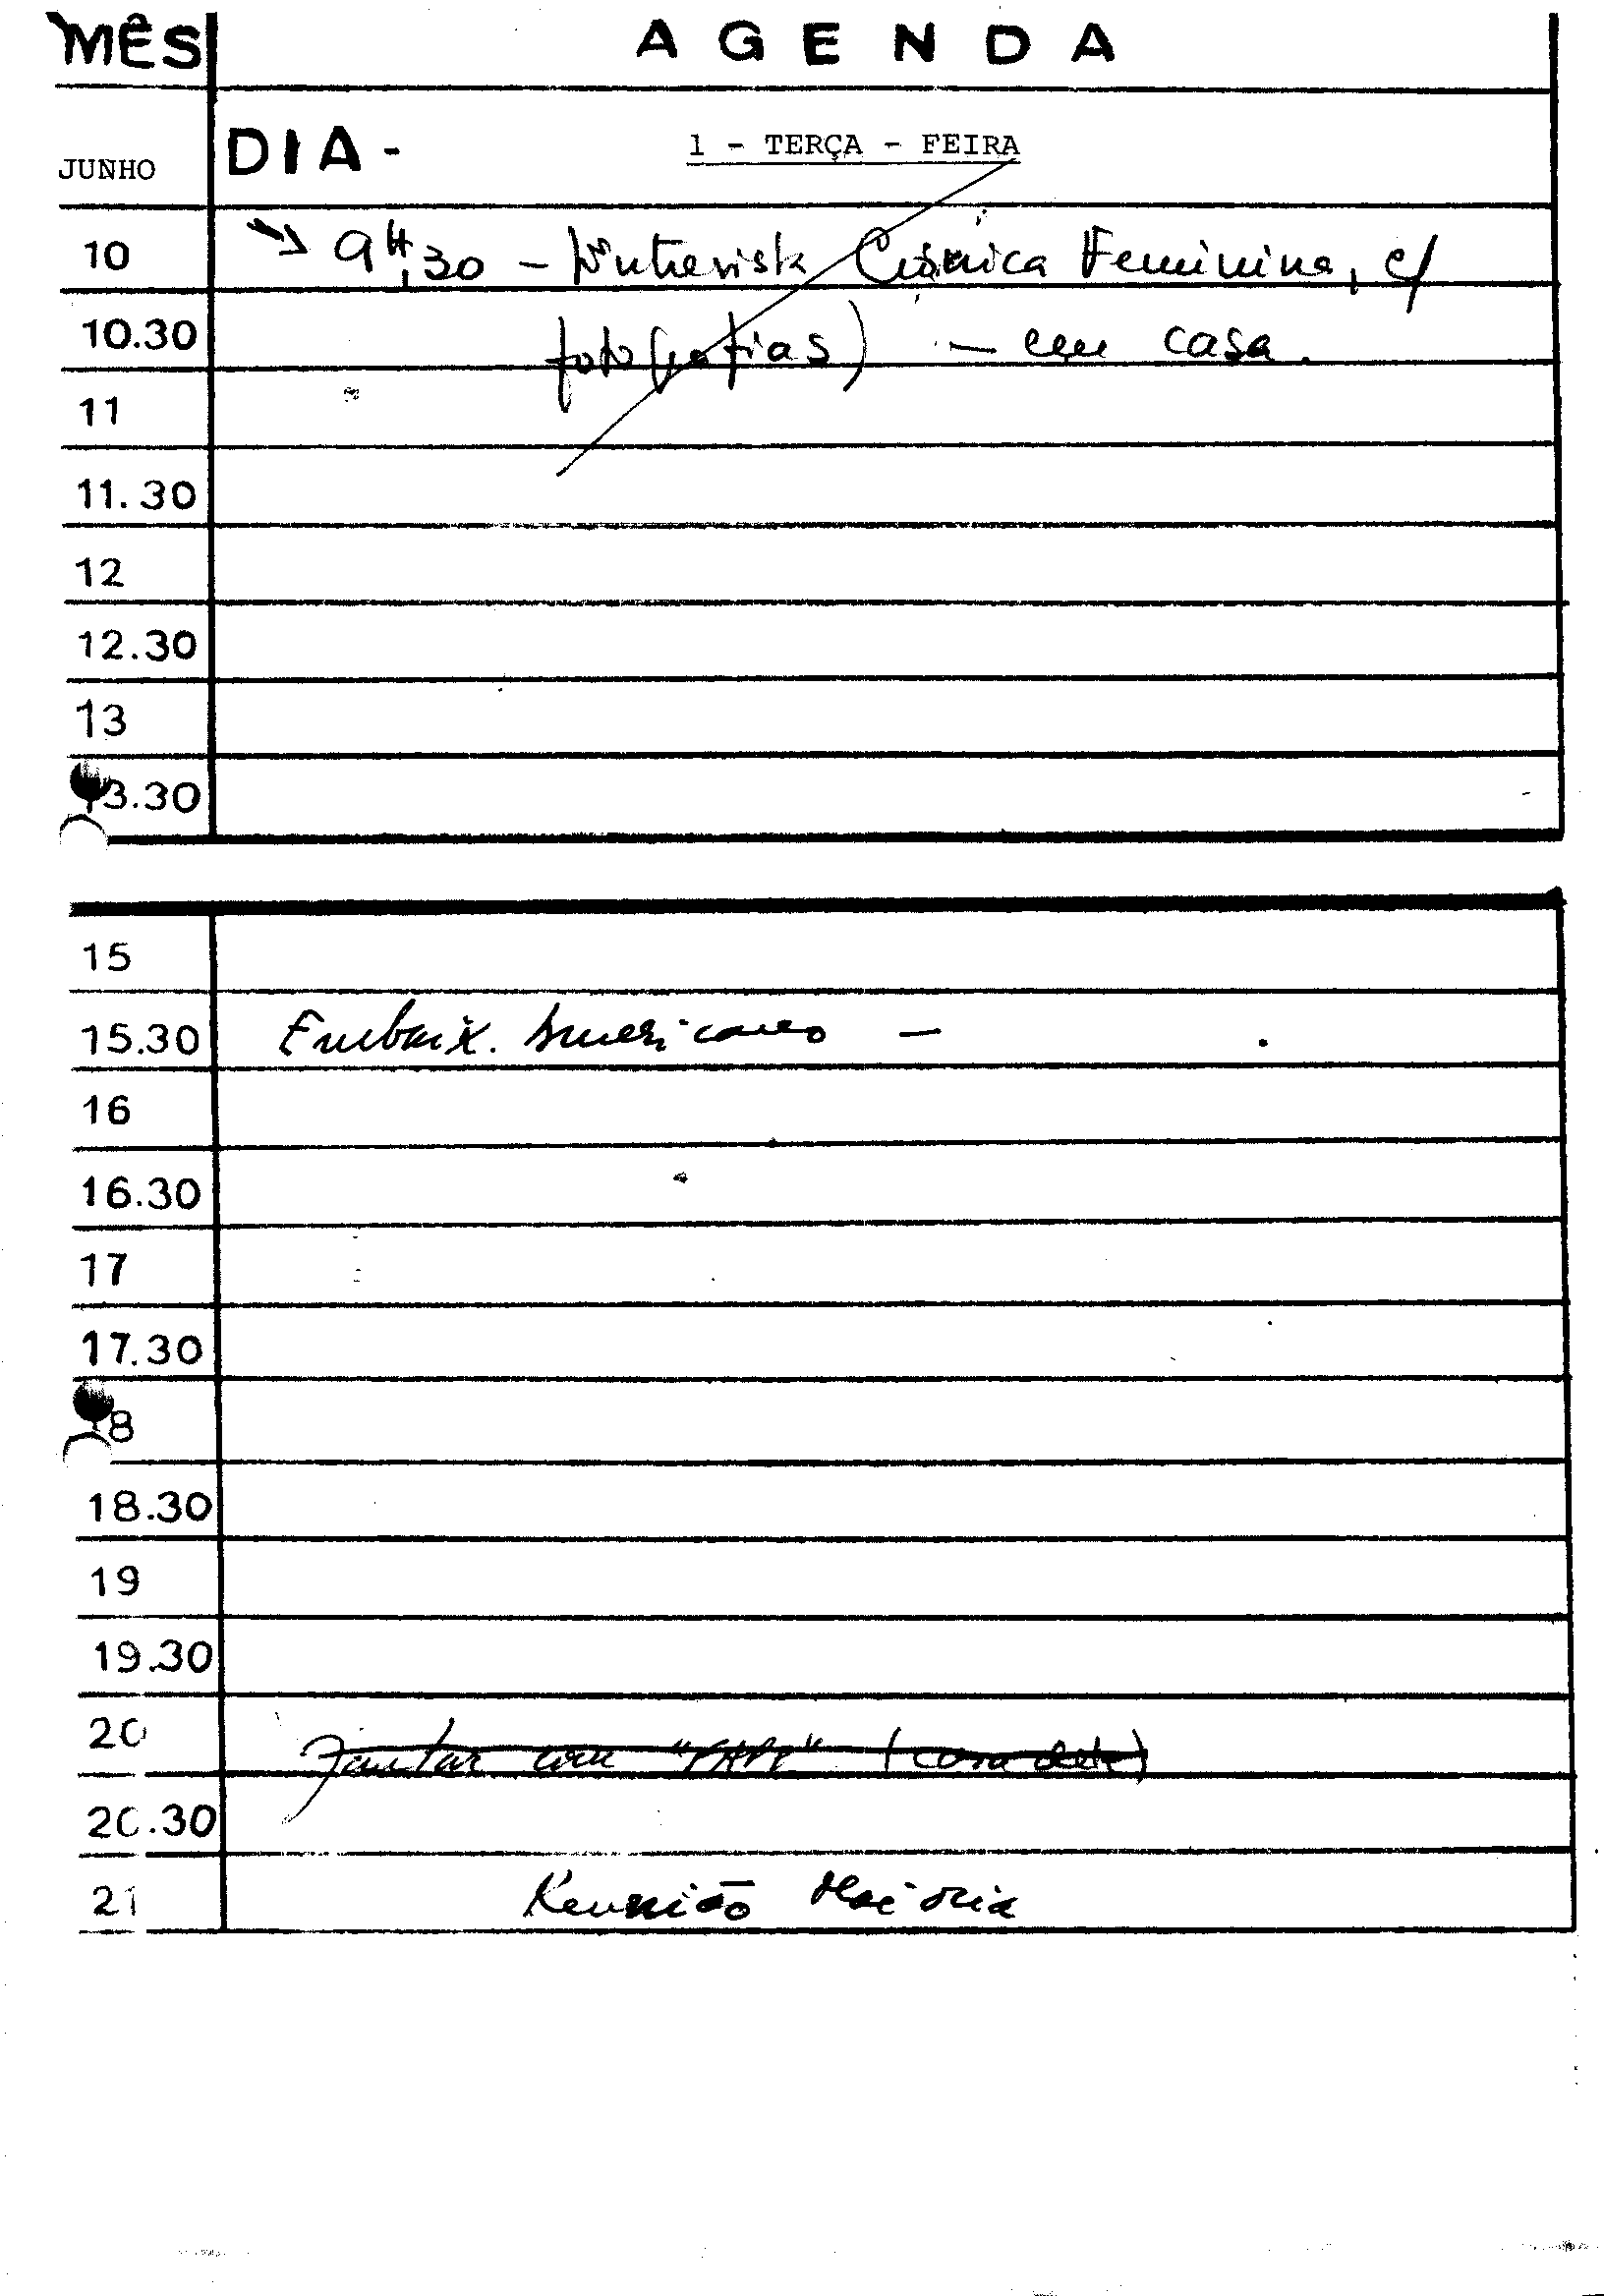 MÊS AGENDA
JUNHO DIA - 1 - TERÇA - FEIRA
10 9H,30 - Entrevista Crónica Feminina, c/
10.30 fotografias) - em casa.
11
11.30
12
12.30
13
13.30
15
15.30 Embaix. Americano -
16
16.30
17
17.30
18
18.30
19
19.30
20 Jantar com (casa dele)
20.30
21 Reunião